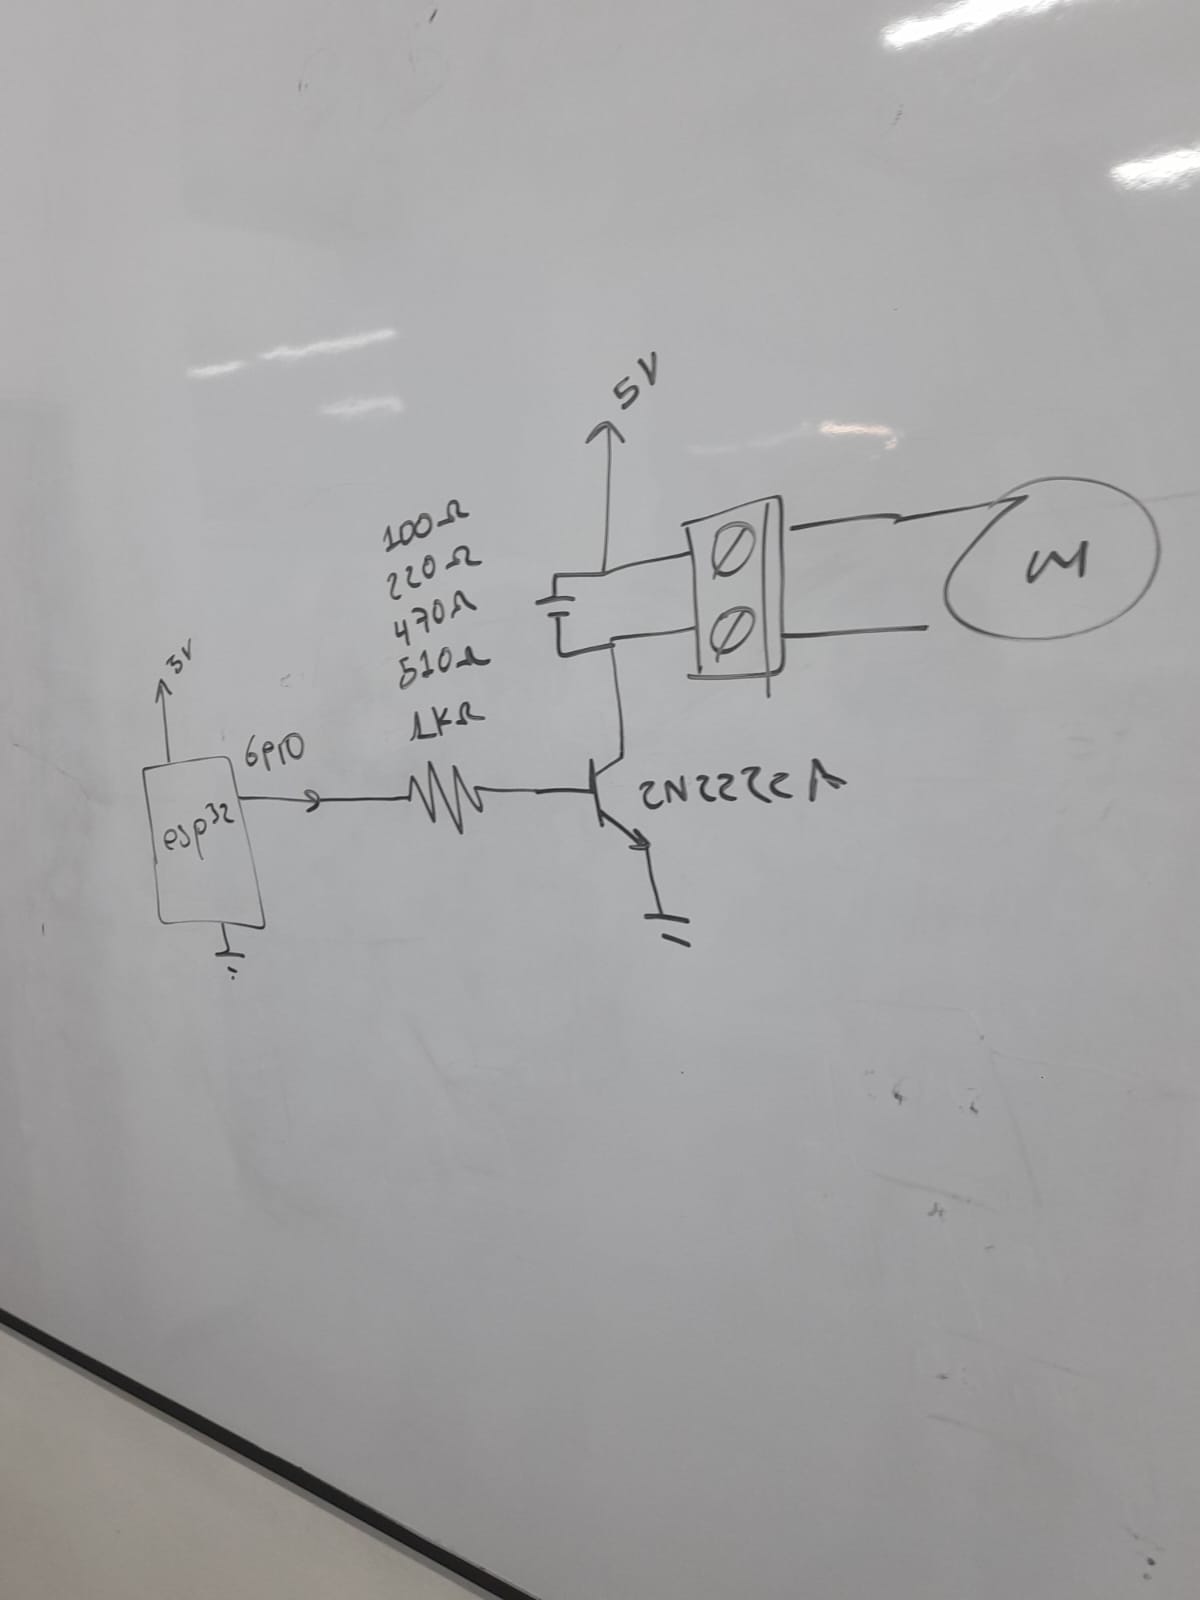 5V
100Ω
220Ω
470Ω
510Ω
1KΩ
3V
GPIO
esp32
2N2222A
M